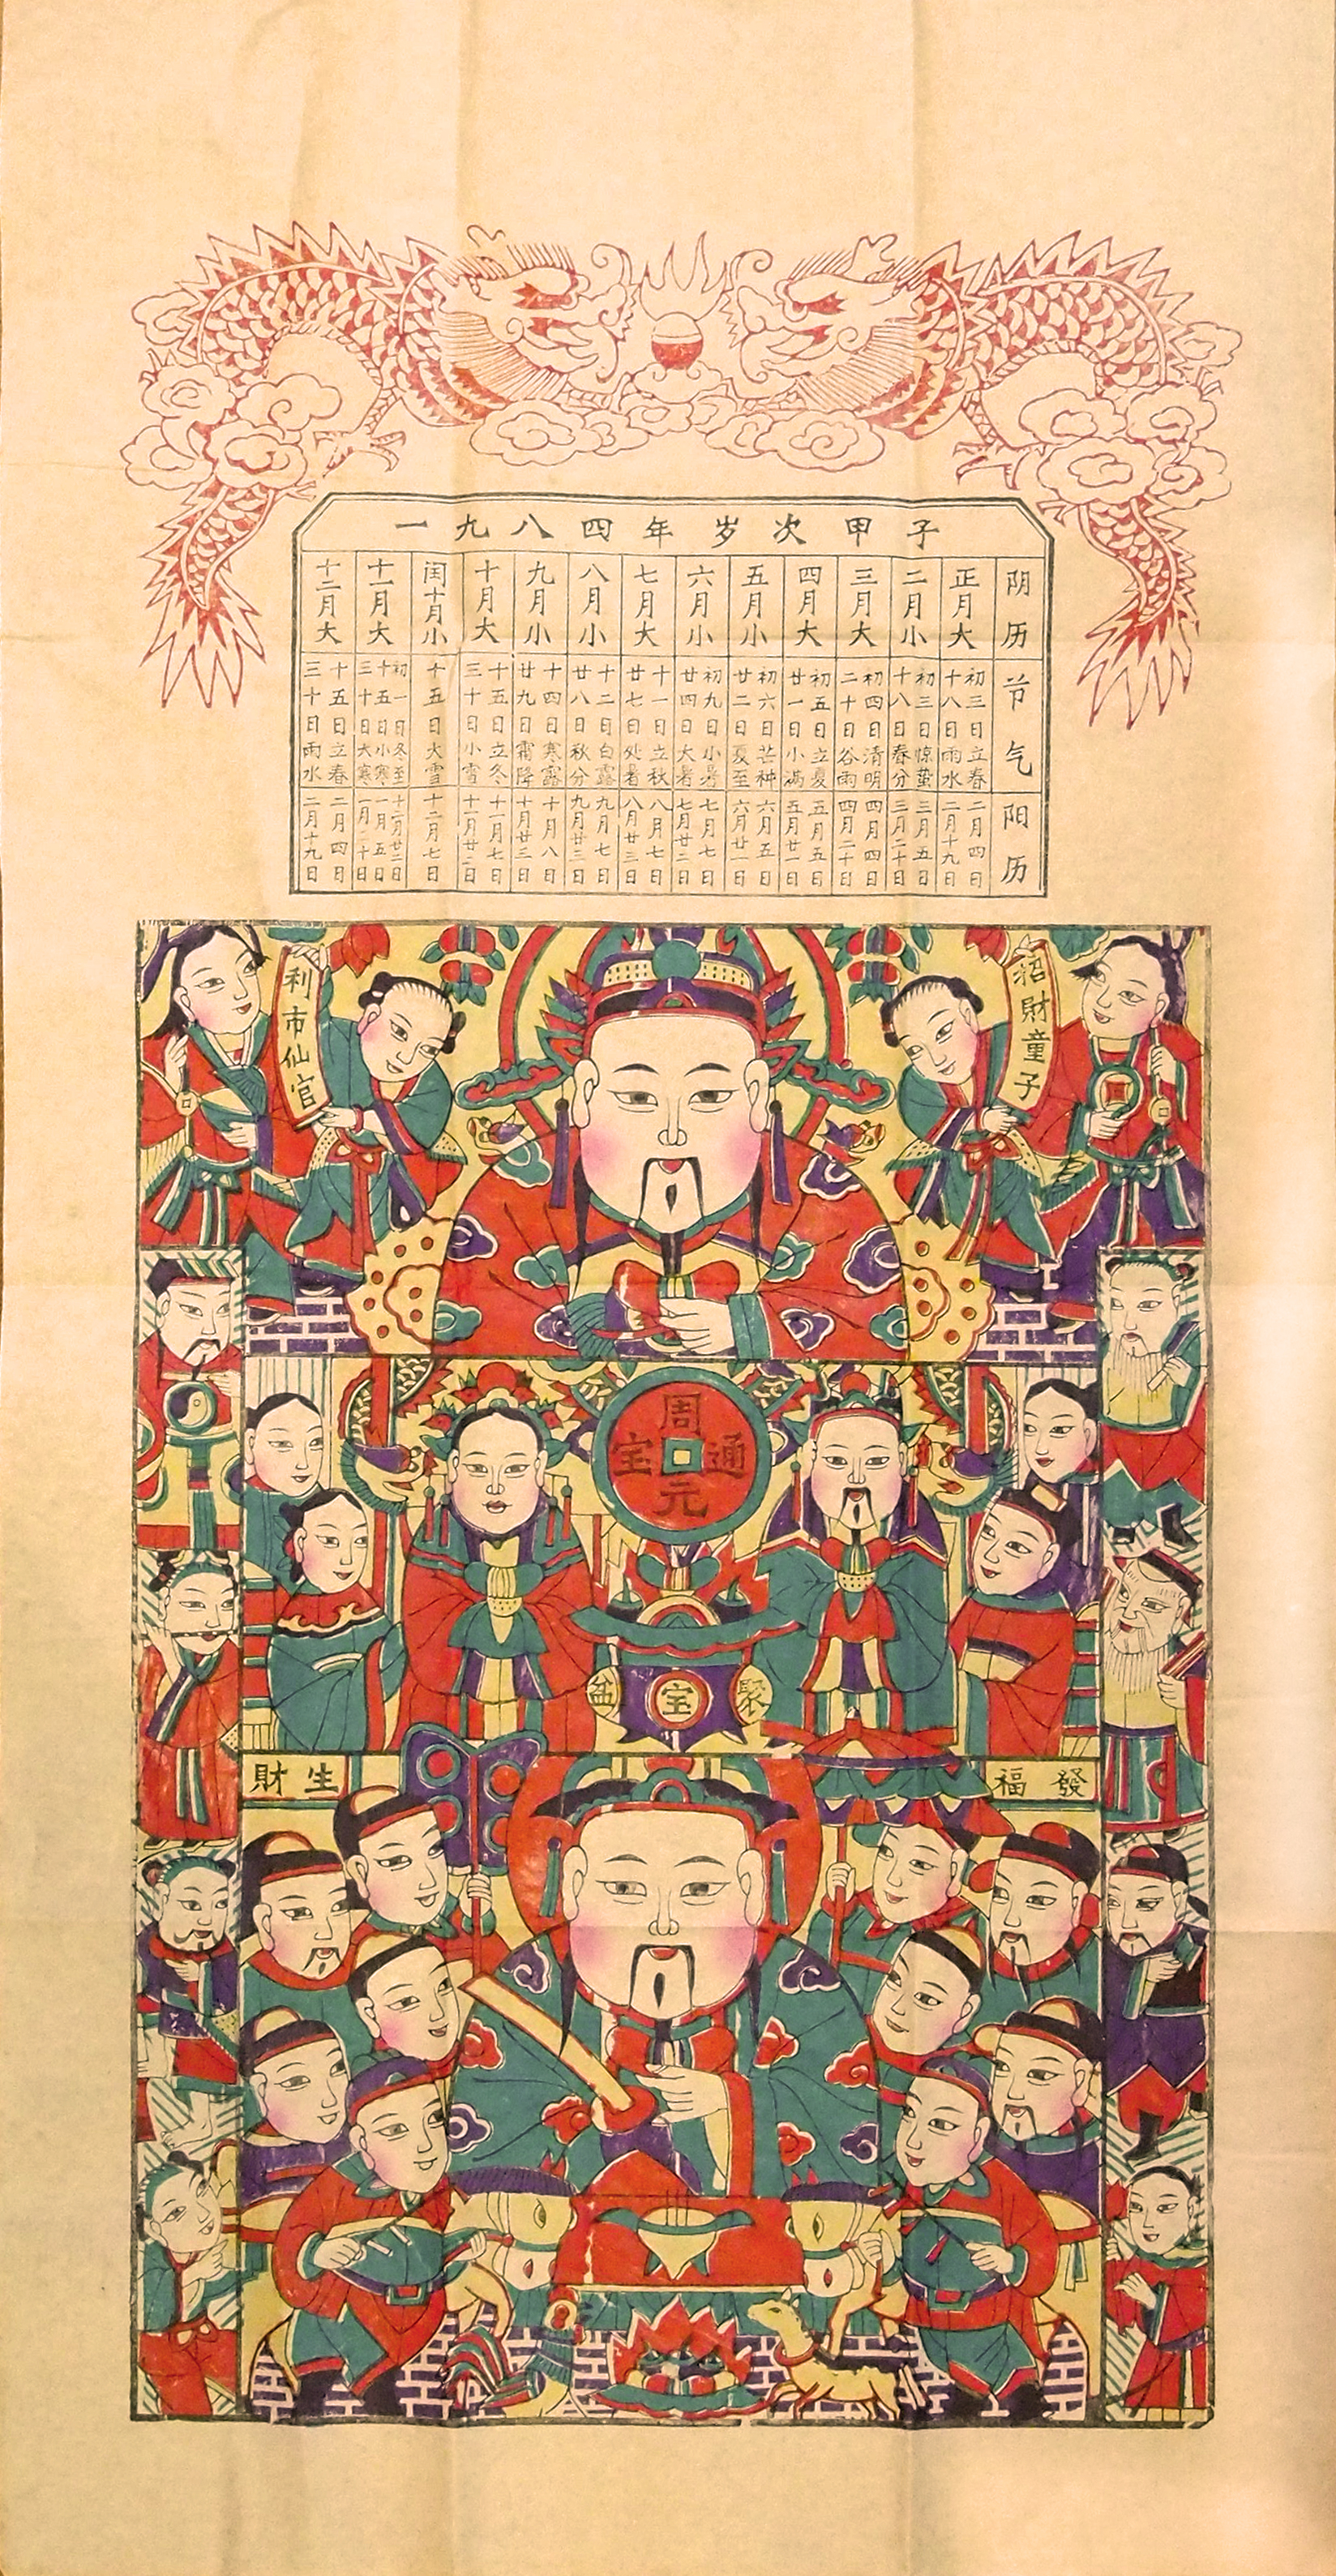 一九八四年岁次甲子
阴历
正月大
二月小
三月大
四月大
五月小
六月小
七月大
八月小
九月小
十月大
闰十月小
十一月大
十二月大
节气
初三日立春
十八日雨水
初三日惊蛰
十八日春分
初四日清明
二十日谷雨
初五日立夏
廿一日小满
初六日芒种
廿二日夏至
初九日小暑
廿四日大暑
十一日立秋
廿七日处暑
十二日白露
廿八日秋分
十四日寒露
廿九日霜降
十五日立冬
三十日小雪
十五日大雪
初一日冬至
十五日小寒
三十日大寒
十五日立春
三十日雨水
阳历
二月四日
二月十九日
三月五日
三月二十日
四月四日
四月二十日
五月五日
五月廿一日
六月五日
六月廿一日
七月七日
七月廿二日
八月七日
八月廿三日
九月七日
九月廿三日
十月八日
十月廿三日
十一月七日
十一月廿二日
十二月七日
十二月廿二日
一月五日
一月二十日
二月四日
二月十九日
招財童子
利市仙官
周元通宝
聚宝盆
發福
生財